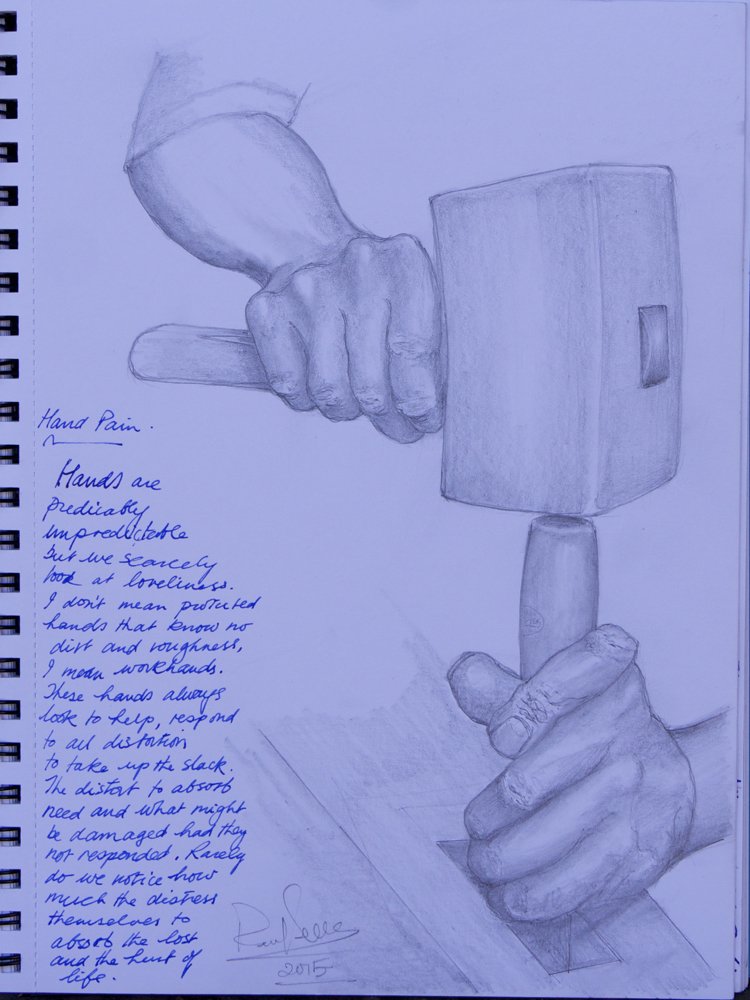 Hand Pain.
Hands are
predicably
unpredictable
but we scarcely
look at loveliness.
I don't mean protected
hands that know no
dirt and roughness,
I mean workhands.
These hands always
look to help, respond
to all distortion
to take up the slack.
The distort to absorb
need and what might
be damaged had they
not responded. Rarely
do we notice how
much the distress
themselves to
absorb the lost
and the hurt of
life.
2015